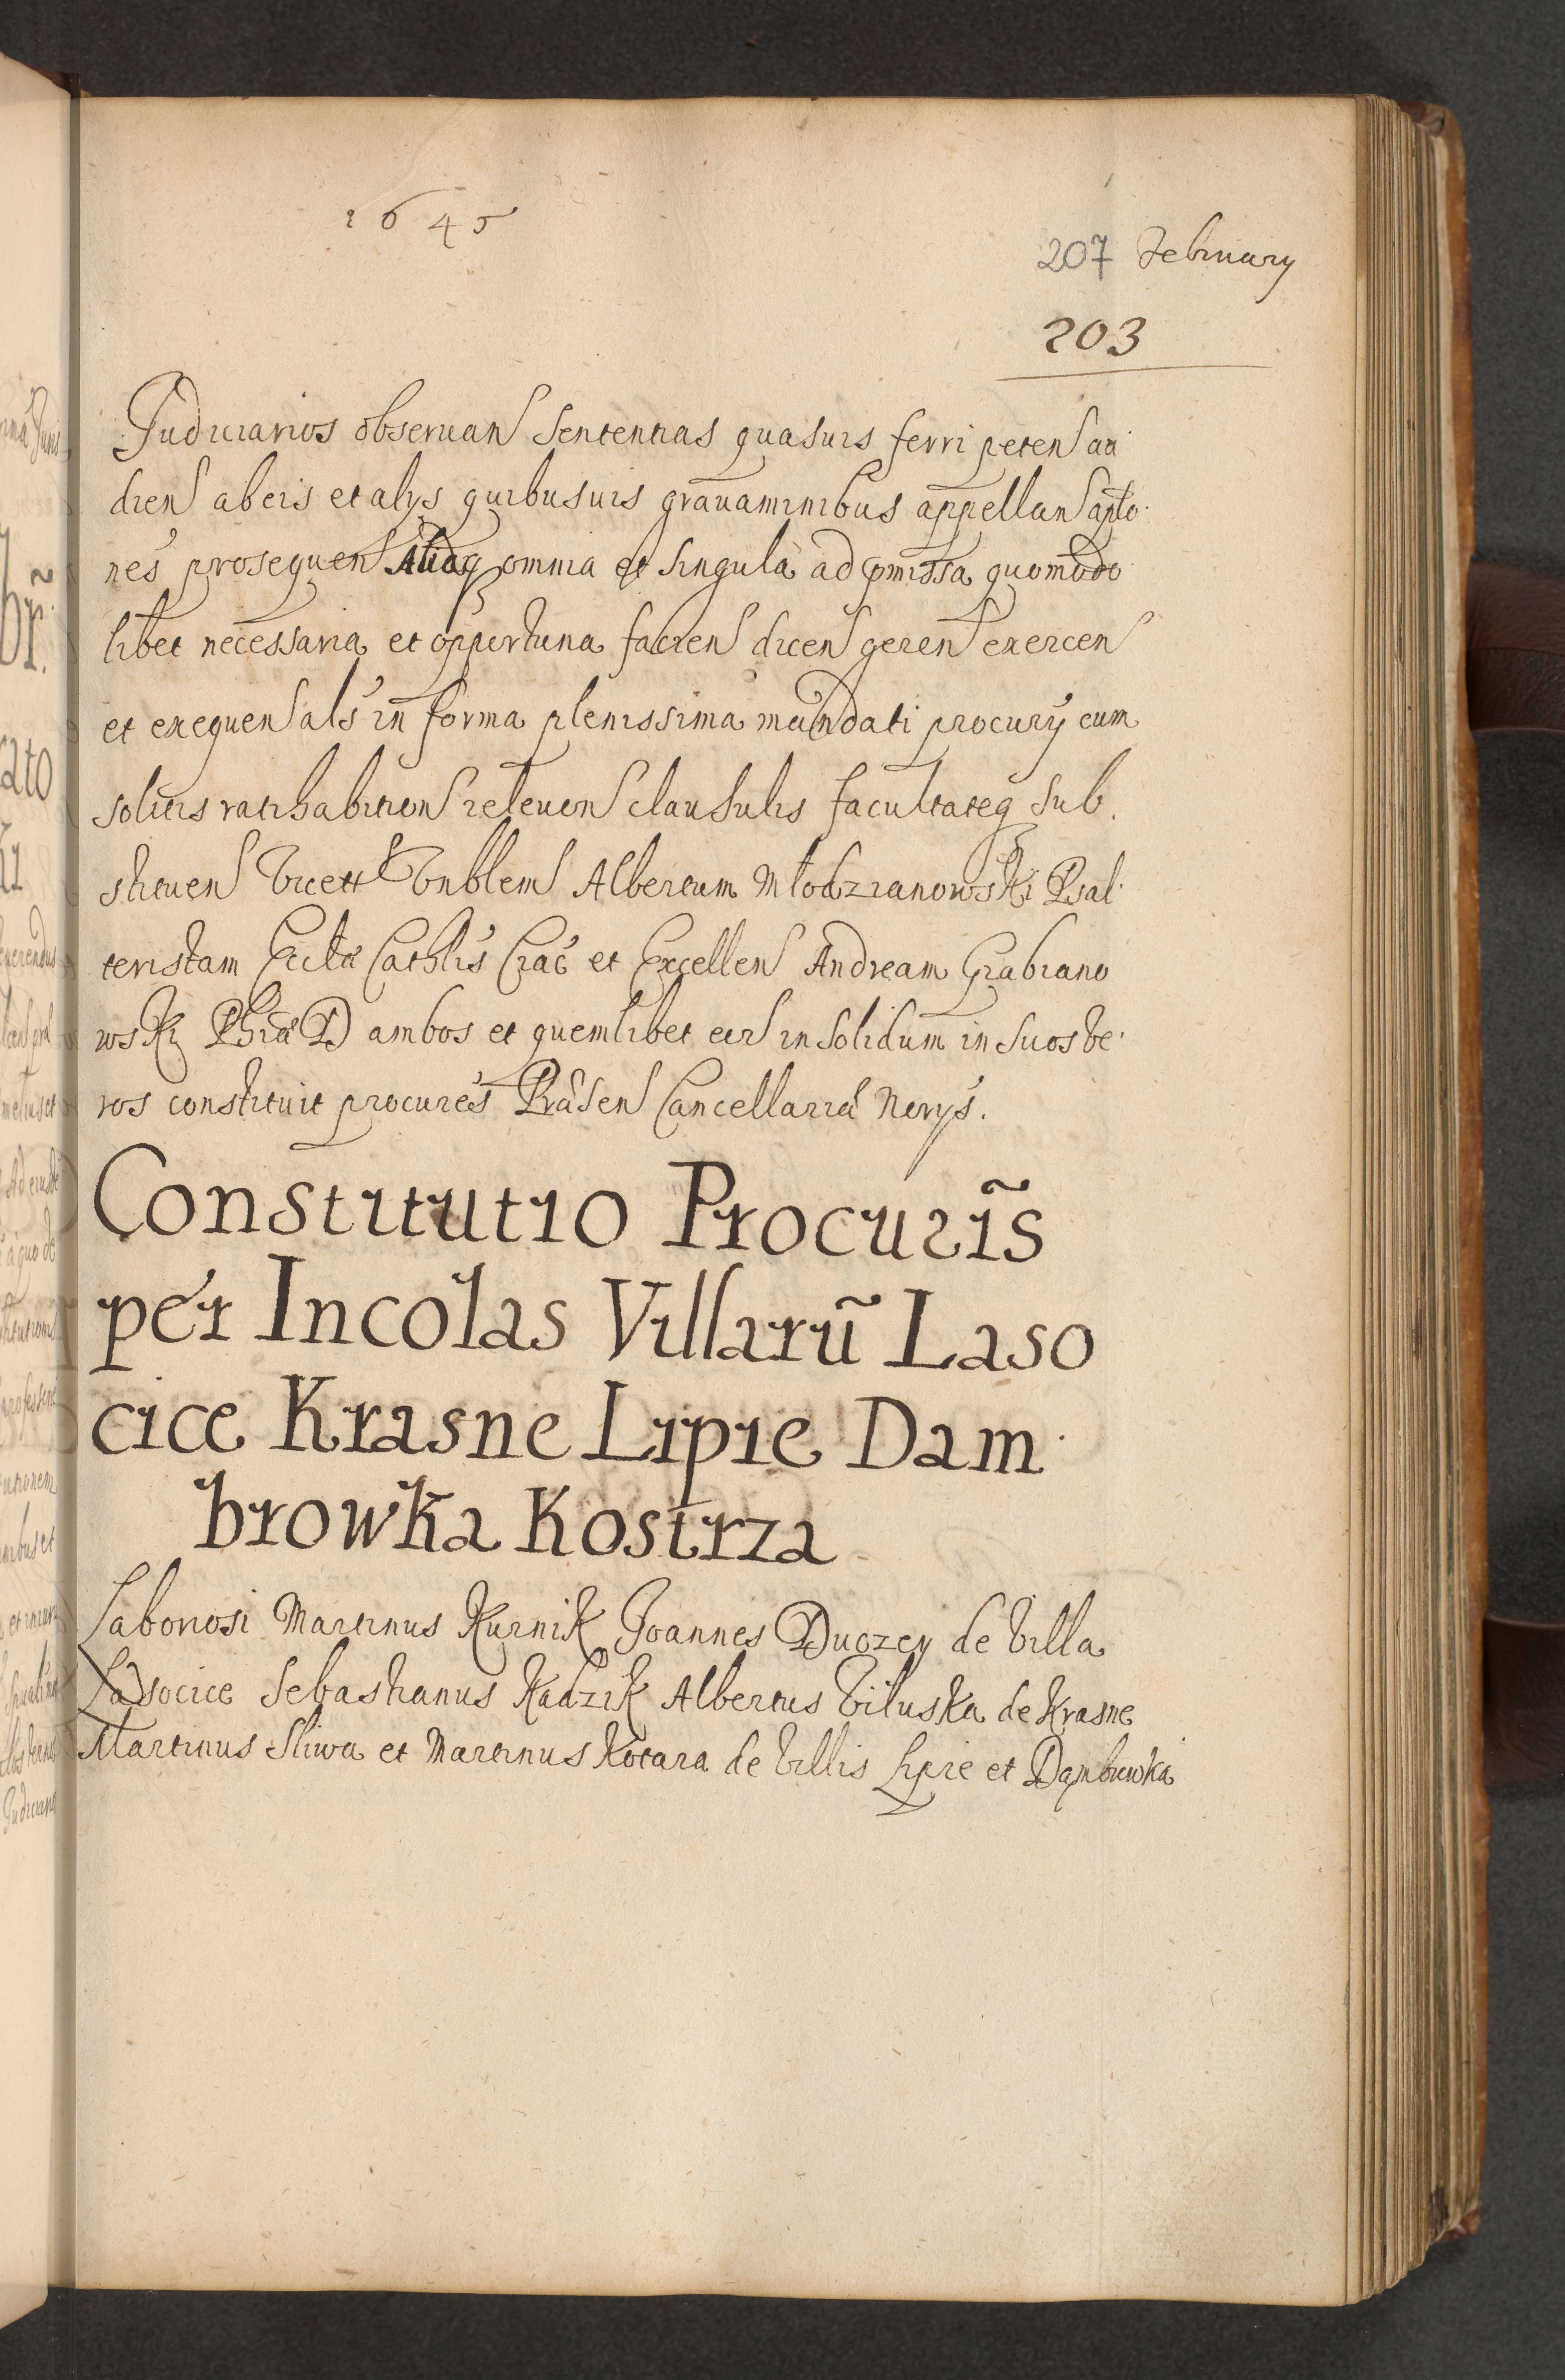 1645
207 February
203
Judiciarios observan Sententias quasuis ferri peten au
dien ab eis et alys quibusuis gravaminibus appellan aplo
nes prosequen Aliaq omnia et Singula ad pmissa quomodo
libet necessaria et opportuna facien dicen geren exercen
et exequen als in forma plenissima mandati procury cum
solitis ratihabition releuon clausulis facultateq Sub
stituen Vnblem Albertum Młodzianowski Psal
teristam Eccla Cathlis Crac et Excellen Andream Grabiano
wski Phia D ambos et quemlibet eor in Solidum in Suos ve
ros constituit procures Præsen Cancellaria Norys.
Constitutio Procuris
per Incolas Villarũ Laso
cice Krasne Lipie Dam
browka Kostrza
Laboriosi Martinus Kurnik Joannes Duozey de Villa
Lasocice Sebastianus Kadzik Albertus Biluska de Krasne
Martinus Sliwa et Martinus Kotara de Villis Lipie et Dambrowka